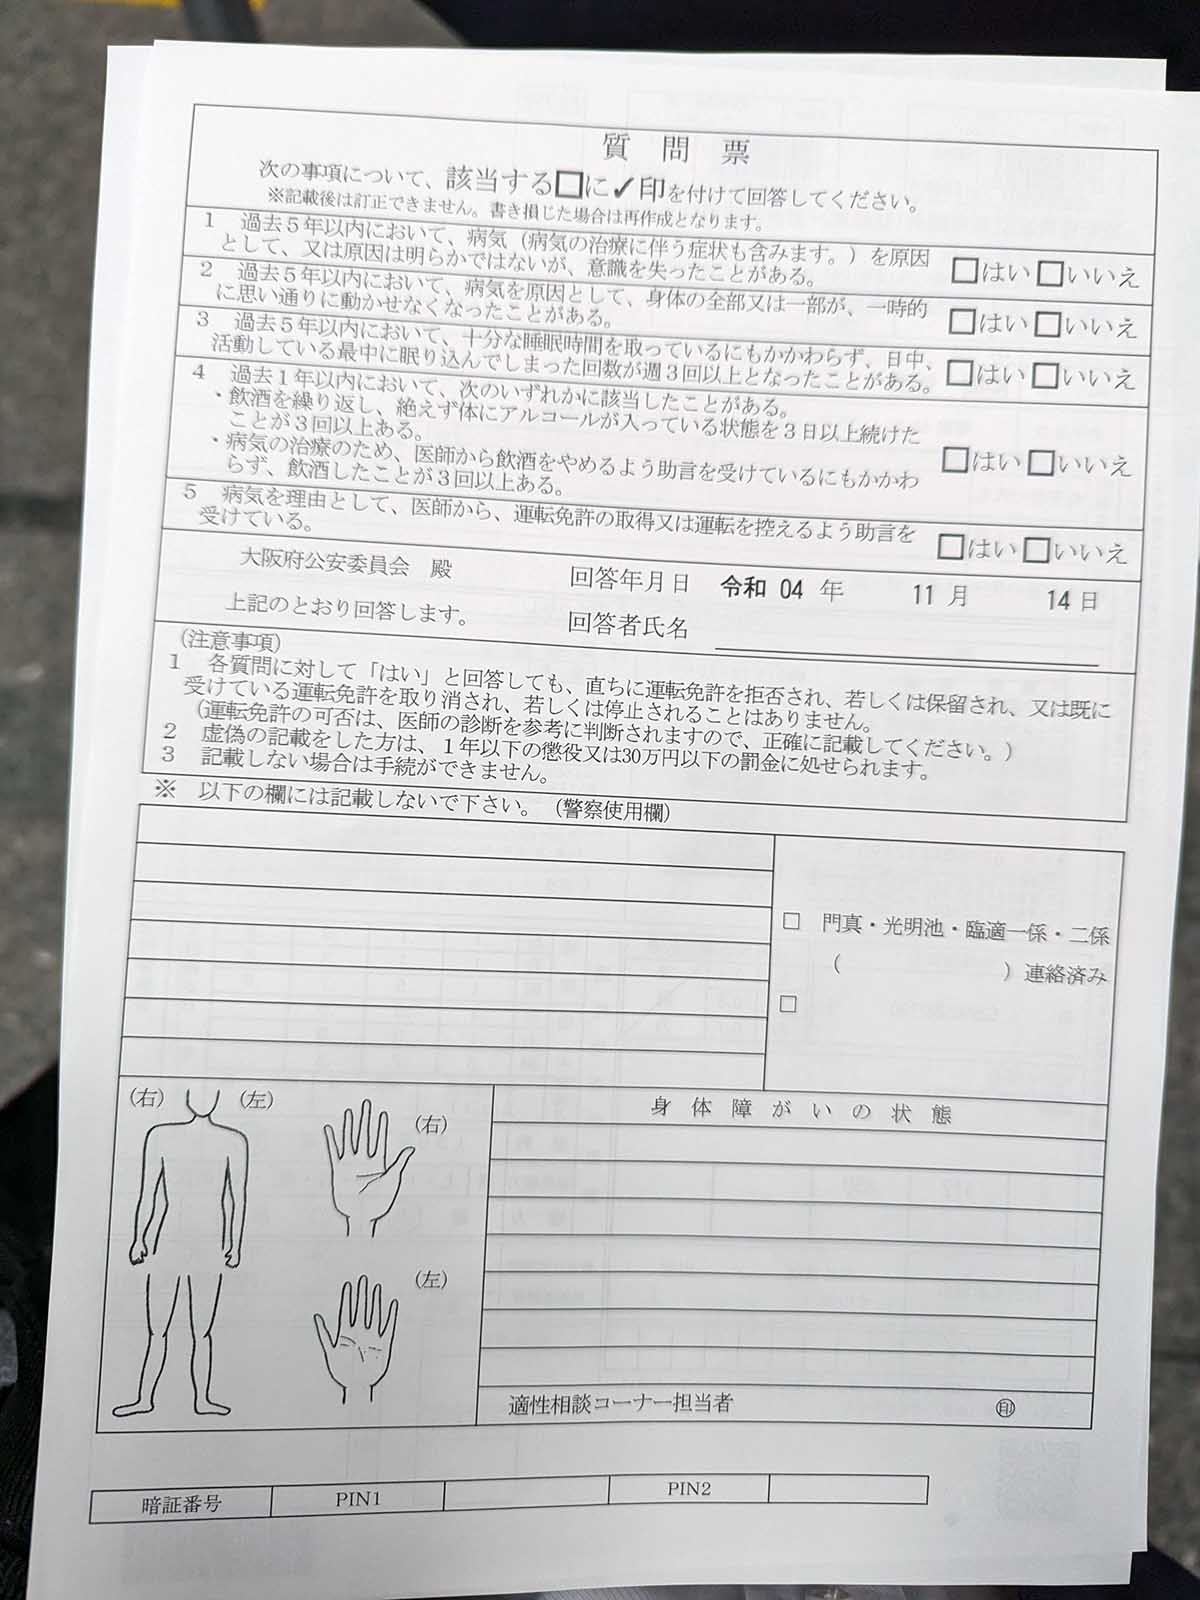 質問票
次の事項について、該当する□に✓印を付けて回答してください。
※記載後は訂正できません。書き損じた場合は再作成となります。
1 過去5年以内において、病気（病気の治療に伴う症状も含みます。）を原因
として、又は原因は明らかではないが、意識を失ったことがある。
□はい □いいえ
2 過去5年以内において、病気を原因として、身体の全部又は一部が、一時的
に思い通りに動かせなくなったことがある。
□はい □いいえ
3 過去5年以内において、十分な睡眠時間を取っているにもかかわらず、日中、
活動している最中に眠り込んでしまった回数が週3回以上となったことがある。
□はい □いいえ
4 過去1年以内において、次のいずれかに該当したことがある。
・飲酒を繰り返し、絶えず体にアルコールが入っている状態を3日以上続けた
ことが3回以上ある。
・病気の治療のため、医師から飲酒をやめるよう助言を受けているにもかかわ
らず、飲酒したことが3回以上ある。
□はい □いいえ
5 病気を理由として、医師から、運転免許の取得又は運転を控えるよう助言を
受けている。
□はい □いいえ
大阪府公安委員会 殿
回答年月日 令和 04 年 11 月 14 日
上記のとおり回答します。
回答者氏名
（注意事項）
1 各質問に対して「はい」と回答しても、直ちに運転免許を拒否され、若しくは保留され、又は既に
受けている運転免許を取り消され、若しくは停止されることはありません。
（運転免許の可否は、医師の診断を参考に判断されますので、正確に記載してください。）
2 虚偽の記載をした方は、1年以下の懲役又は30万円以下の罰金に処せられます。
3 記載しない場合は手続ができません。
※ 以下の欄には記載しないで下さい。（警察使用欄）
□ 門真・光明池・臨適一係・二係
（ ）連絡済み
□
（右） （左）
（右）
（左）
身体障がいの状態
適性相談コーナー担当者 ㊞
暗証番号 PIN1 PIN2